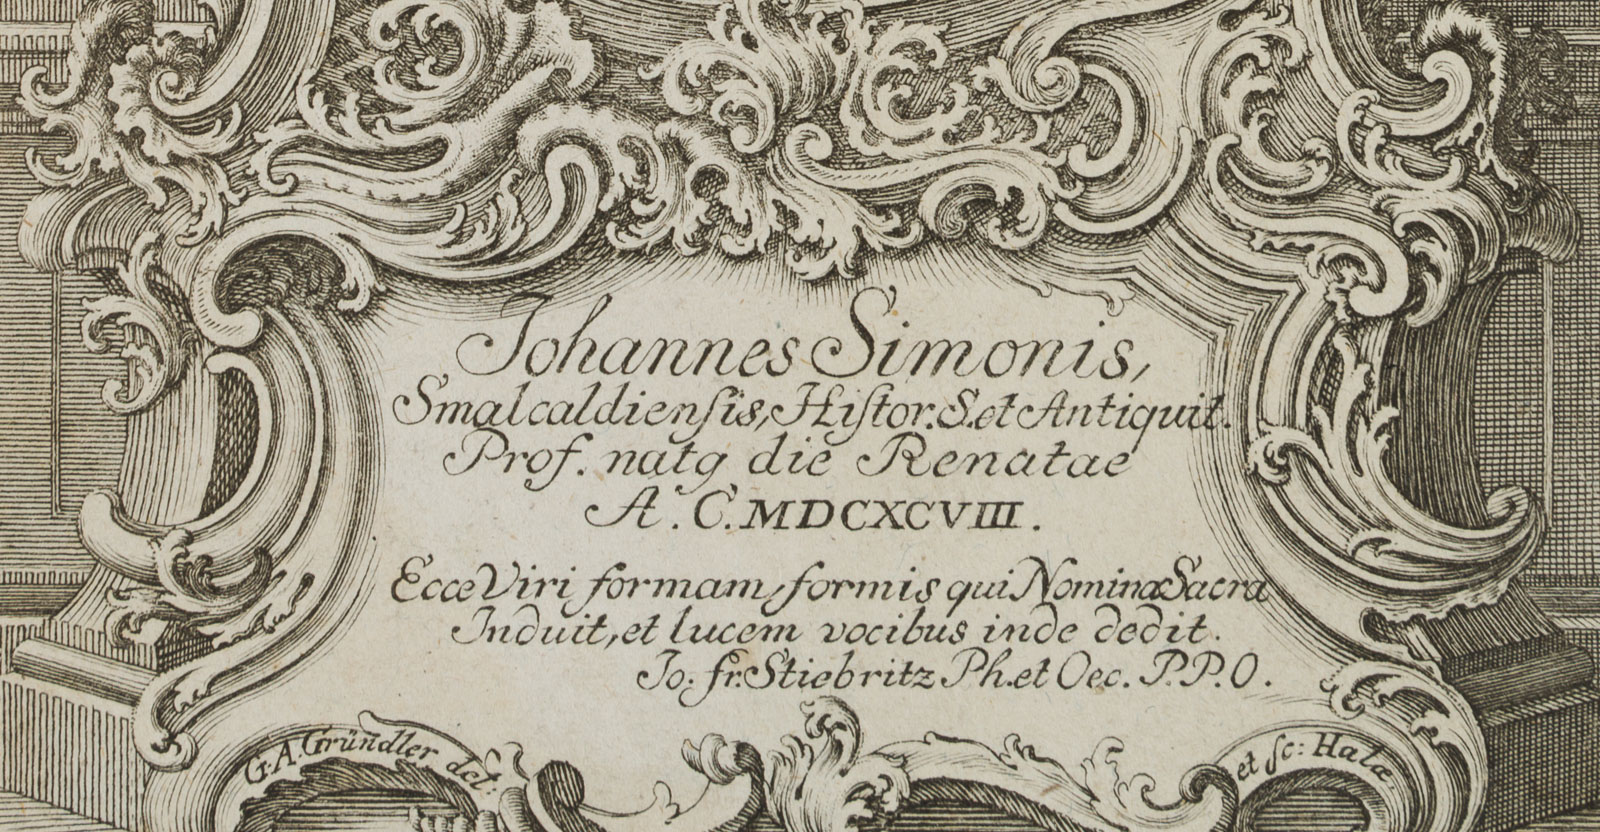 Johannes Simonis,
Smalcaldiensis, Histor. S. et Antiquit.
Prof. natꝰ die Renatae
A. C. MDCXCVIII.
Ecce Viri formam, formis qui Nomina Sacra
Induit, et lucem vocibus inde dedit.
Jo: fr. Stiebritz Ph. et Oec. P. P. O.
G. A. Gründler del:
et sc: Halæ